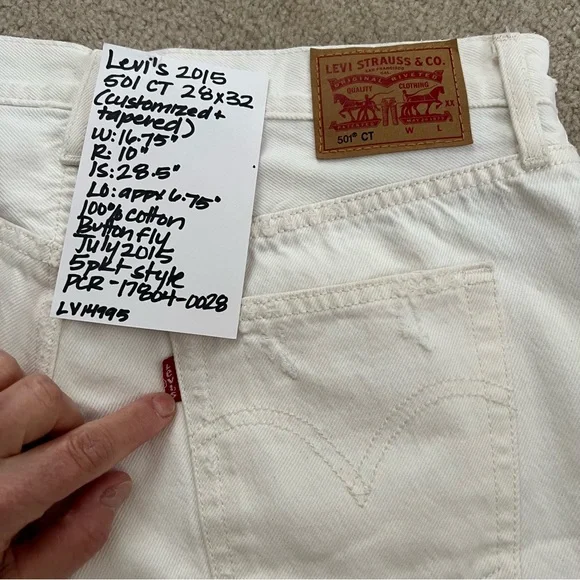 Levi's 2015
501 CT 28x32
(customized +
tapered)
W: 16.75"
R: 10"
IS: 28.5"
LO: appx 6.75"
100% cotton
Button fly
July 2015
5pkt style
PCR-17804-0028
LV14995
LEVI STRAUSS & CO.
SAN FRANCISCO
CAL
ORIGINAL RIVETED
QUALITY CLOTHING
XX
501® CT W L
LEVI'S